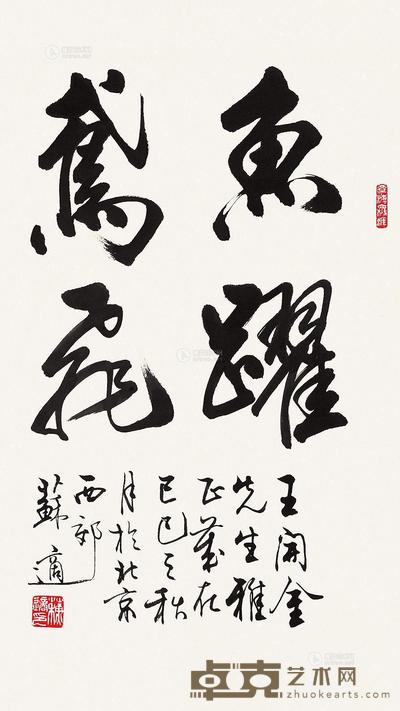 魚躍
鳶飛
王開金
先生雅
正歲在
己巳之秋
月於北京
西郊
蘇適
卓克艺术网
zhuokearts.com